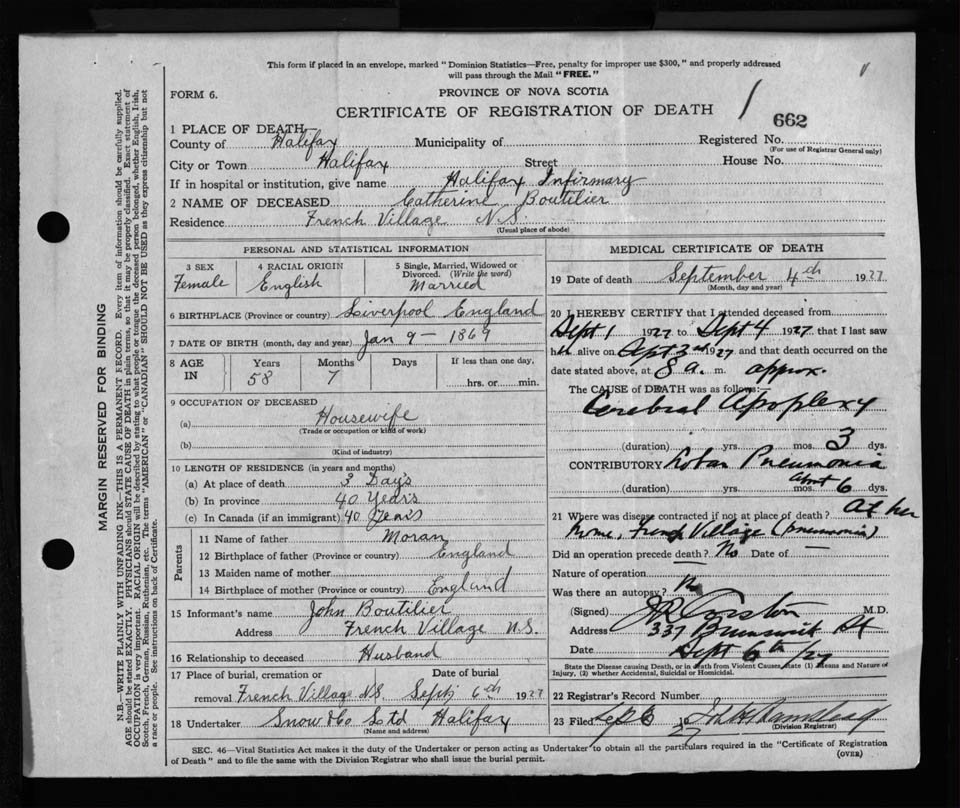 This form if placed in an envelope, marked "Dominion Statistics—Free, penalty for improper use $300," and properly addressed
will pass through the Mail "FREE."
FORM 6.
PROVINCE OF NOVA SCOTIA
CERTIFICATE OF REGISTRATION OF DEATH
662
1 PLACE OF DEATH
County of Halifax Municipality of Registered No.
(For use of Registrar General only)
City or Town Halifax Street House No.
If in hospital or institution, give name Halifax Infirmary
2 NAME OF DECEASED Catherine Boutilier
Residence French Village N.S.
(Usual place of abode)
PERSONAL AND STATISTICAL INFORMATION
3 SEX 4 RACIAL ORIGIN 5 Single, Married, Widowed or
Divorced. (Write the word)
Female English Married
6 BIRTHPLACE (Province or country) Liverpool England
7 DATE OF BIRTH (month, day and year) Jan 9 - 1869
8 AGE IN Years Months Days If less than one day,
58 7 hrs. or min.
9 OCCUPATION OF DECEASED
(a) Housewife
(Trade or occupation or kind of work)
(b)
(Kind of industry)
10 LENGTH OF RESIDENCE (in years and months)
(a) At place of death 3 Days
(b) In province 40 Years
(c) In Canada (if an immigrant) 40 Years
Parents
11 Name of father Moran
12 Birthplace of father (Province or country) England
13 Maiden name of mother
14 Birthplace of mother (Province or country) England
15 Informant's name John Boutilier
Address French Village N.S.
16 Relationship to deceased Husband
17 Place of burial, cremation or Date of burial
removal French Village N.S. Sept 6th 1927
18 Undertaker Snow & Co Ltd Halifax
(Name and address)
MEDICAL CERTIFICATE OF DEATH
19 Date of death September 4th 1927
(Month, day and year)
20 I HEREBY CERTIFY that I attended deceased from
Sept 1 1927 to Sept 4 1927, that I last saw
her alive on Sept 3rd 1927 and that death occurred on the
date stated above, at 8 a. m. approx.
The CAUSE of DEATH was as follows:—
Cerebral Apoplexy
(duration) yrs. mos. 3 dys.
CONTRIBUTORY Lobar Pneumonia
(duration) yrs. mos. about 6 dys.
21 Where was disease contracted if not at place of death? At her
home, French Village (pneumonia)
Did an operation precede death? No Date of —
Nature of operation —
Was there an autopsy? No
(Signed) M.D.
Address 337 Brunswick St
Date Sept 6th/27
State the Disease causing Death, or in death from Violent Causes, state (1) Means and Nature of
Injury, (2) whether Accidental, Suicidal or Homicidal.
22 Registrar's Record Number
23 Filed Sept 6 19 27
(Division Registrar)
SEC. 46—Vital Statistics Act makes it the duty of the Undertaker or person acting as Undertaker to obtain all the particulars required in the "Certificate of Registration
of Death" and to file the same with the Division Registrar who shall issue the burial permit.
(OVER)
MARGIN RESERVED FOR BINDING
N.B.—WRITE PLAINLY WITH UNFADING INK—THIS IS A PERMANENT RECORD. Every item of information should be carefully supplied.
AGE should be stated EXACTLY. PHYSICIANS should STATE CAUSE OF DEATH in plain terms, so that it may be properly classified. Exact statement of
OCCUPATION is very important. RACIAL ORIGIN will be described by stating to what people or tongue the deceased person belonged, whether English, Irish,
Scotch, French, German, Russian, Ruthenian, etc. The terms "AMERICAN" or "CANADIAN" SHOULD NOT BE USED as they express citizenship but not
a race or people. See instructions on back of Certificate.